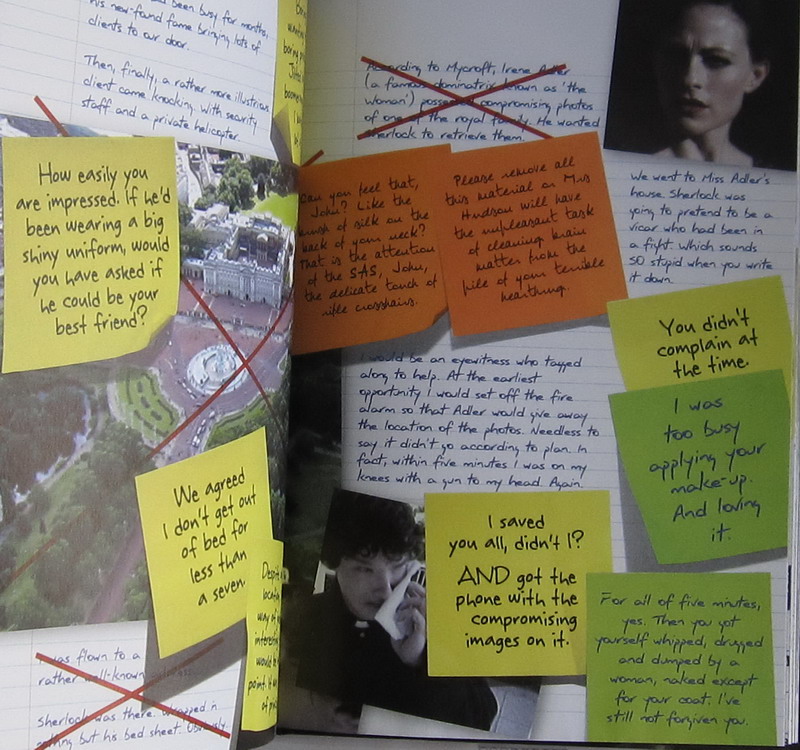 been busy for months,
his new-found fame bringing lots of
clients to our door.
Then, finally, a rather more illustrious
client came knocking, with security
staff and a private helicopter.
How easily you
are impressed. If he'd
been wearing a big
shiny uniform, would
you have asked if
he could be your
best friend?
We agreed
I don't get out
of bed for
less than
a seven.
I was flown to a
rather well-known
Sherlock was there. Wrapped in
nothing but his bed sheet. Obviously.
According to Mycroft, Irene Adler
(a famous dominatrix known as 'the
woman') possessed compromising photos
of one of the royal family. He wanted
Sherlock to retrieve them.
Can you feel that,
John? Like the
brush of silk on the
back of your neck?
That is the attention
of the SAS, John,
the delicate touch of
rifle crosshairs.
Please remove all
this material or Mrs
Hudson will have
the unpleasant task
of cleaning brain
matter from the
pile of your terrible
hearthrug.
We went to Miss Adler's
house. Sherlock was
going to pretend to be a
vicar who had been in
a fight. Which sounds
SO stupid when you write
it down.
You didn't
complain at
the time.
I was
too busy
applying your
make-up.
And loving
it.
I would be an eyewitness who tagged
along to help. At the earliest
opportunity I would set off the fire
alarm so that Adler would give away
the location of the photos. Needless to
say it didn't go according to plan. In
fact, within five minutes I was on my
knees with a gun to my head. Again.
I saved
you all, didn't I?
AND got the
phone with the
compromising
images on it.
For all of five minutes,
yes. Then you got
yourself whipped, drugged
and dumped by a
woman, naked except
for your coat. I've
still not forgiven you.